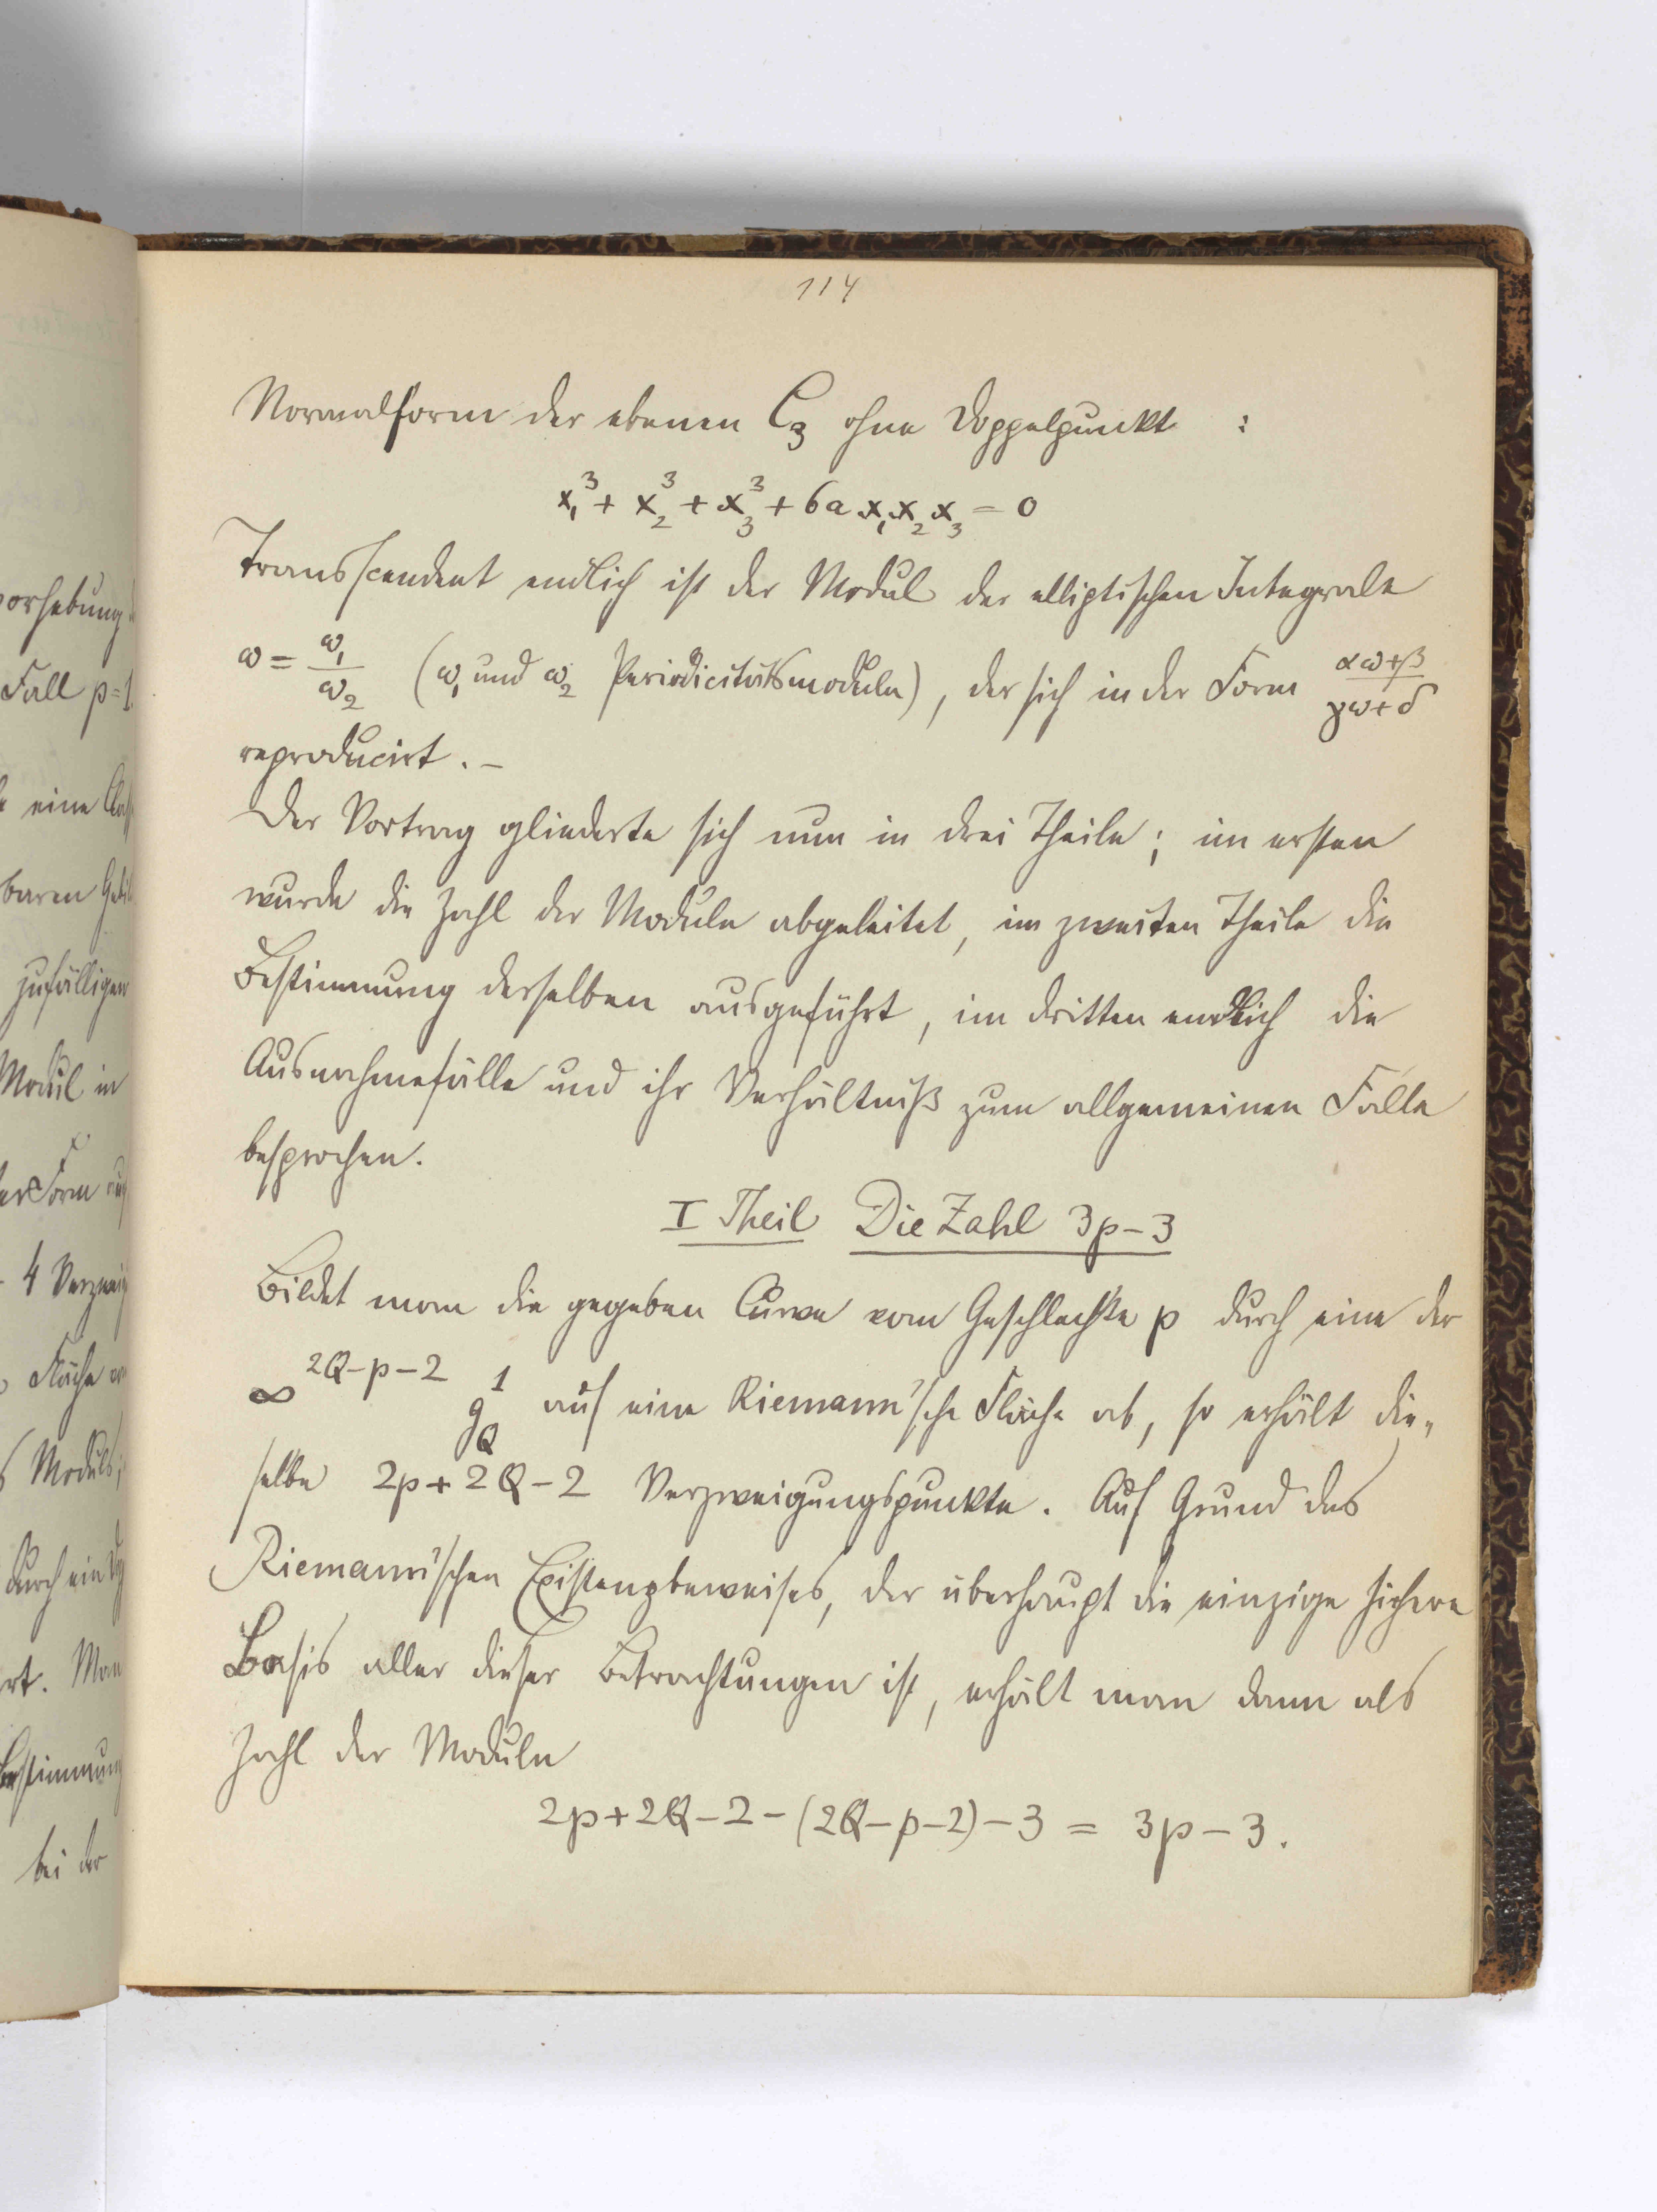 orhebung
Fall p=1.
eine
baren
zufälligen
Modul in
Form
4
Fläche
Moduls,
durch ein
rt. Man
Bestimmung
bei der
114
Normalform der ebenen C₃ ohne Doppelpunkt :
x₁³ + x₂³ + x₃³ + 6a x₁x₂x₃ = 0
Transscendent endlich ist der Modul der elliptischen Integrale
ω = ω₁/ω₂ (ω₁ und ω₂ Periodicitätsmoduln), der sich in der Form (αω+β)/(γω+δ)
reproducirt. –
Der Vortrag gliederte sich nun in drei Theile; im ersten
wurde die Zahl der Moduln abgeleitet, im zweiten Theile die
Bestimmung derselben ausgeführt, im dritten endlich die
Ausnahmefälle und ihr Verhältniß zum allgemeinen Falle
besprochen.
I Theil Die Zahl 3p–3
Bildet man die gegeben Curve vom Geschlechte p durch eine der
∞^(2Q–p–2) g_Q^1 auf eine Riemann'sche Fläche ab, so erhält die„
selbe 2p+2Q–2 Verzweigungspunkte. Auf Grund des
Riemann'schen Existenzbeweises, der überhaupt die einzige sichere
Basis aller dieser Betrachtungen ist, erhält man dann als
Zahl der Moduln
2p+2Q–2–(2Q–p–2)–3 = 3p–3.